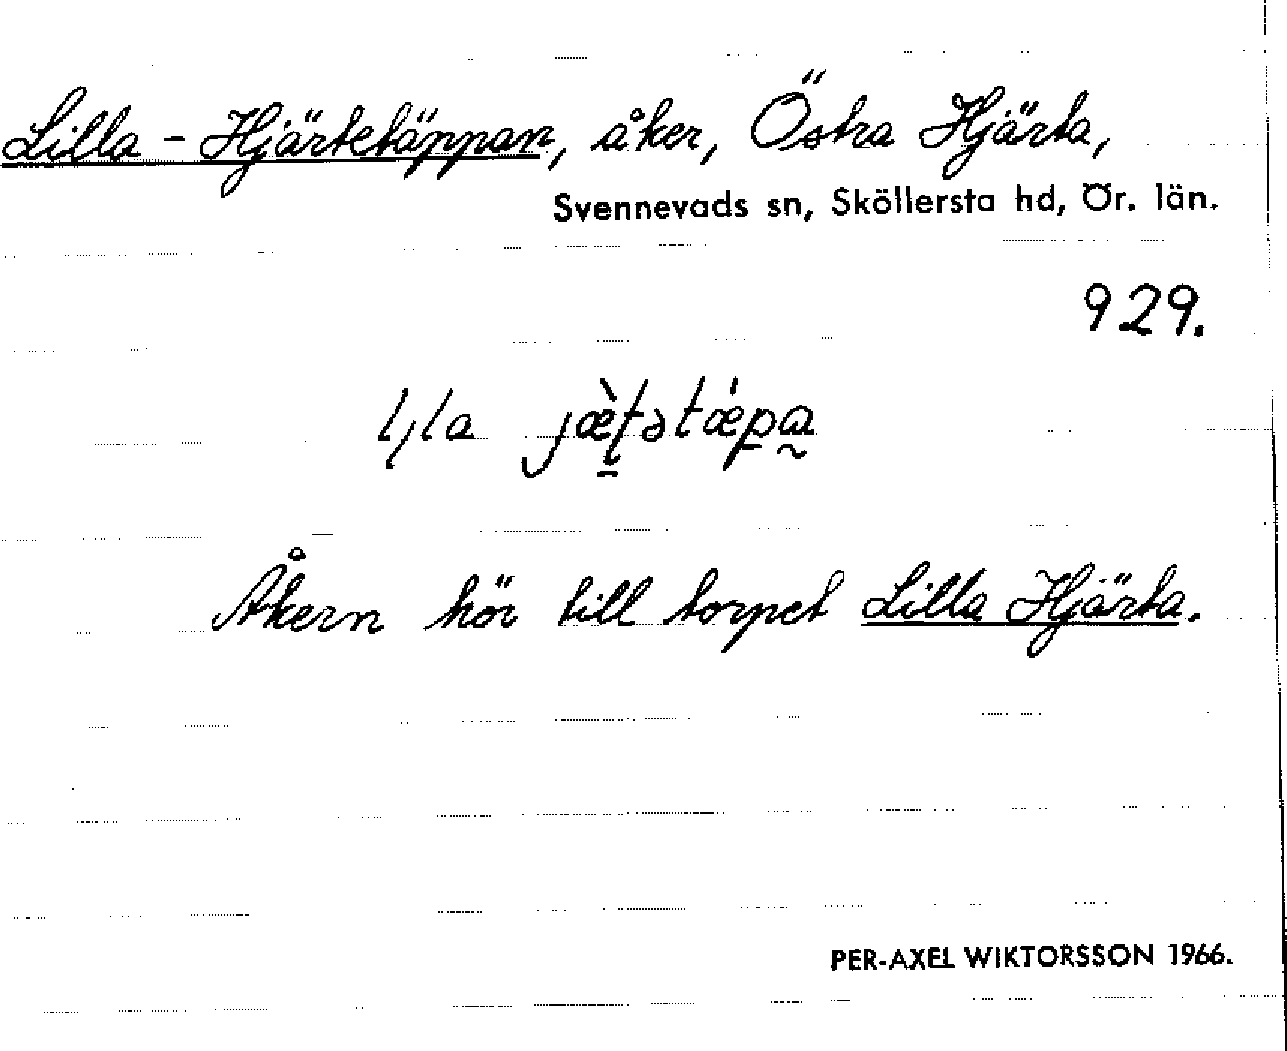 Lilla-Hjärtetäppan, åker, Östra Hjärta,
Svennevads sn, Sköllersta hd, Ör. län.
929.
Åkern hör till torpet Lilla Hjärta.
PER-AXEL WIKTORSSON 1966.